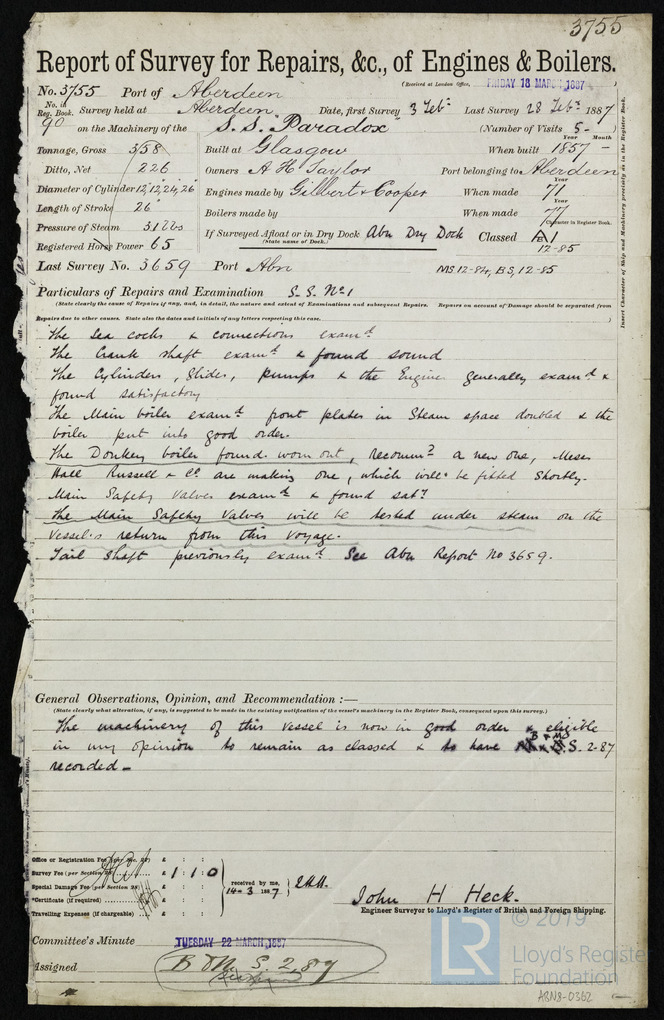 3755
Report of Survey for Repairs, &c., of Engines & Boilers.
(Received at London Office, FRIDAY 18 MARCH 1887)
No. 3755 Port of Aberdeen
No. in Reg. Book. Survey held at Aberdeen Date, first Survey 3 Feby Last Survey 28 Feby 1887
90 on the Machinery of the S.S. "Paradox" (Number of Visits 5
Tonnage, Gross 558 Built at Glasgow When built 1857
Ditto, Net 226 Owners A H Taylor Port belonging to Aberdeen
Diameter of Cylinder 12", 12", 24, 26 Engines made by Gilbert & Cooper When made 71
Length of Stroke 26" Boilers made by When made 77
Pressure of Steam 31 lbs If Surveyed Afloat or in Dry Dock Abn Dry Dock Classed A1
(State name of Dock.) 12-85
Character in Register Book.
Registered Horse Power 65
Last Survey No. 3659 Port Abn MS 12-84, BS, 12-85
Insert Character of Ship and Machinery precisely as in the Register Book.
Particulars of Repairs and Examination S.S. No 1
(State clearly the cause of Repairs if any, and, in detail, the nature and extent of Examinations and subsequent Repairs. Repairs on account of Damage should be separated from
Repairs due to other causes. State also the dates and initials of any letters respecting this case.)
The Sea cocks & connections examd
The Crank shaft examd & found sound
The Cylinders, Slides, pumps & the Engine generally examd &
found satisfactory
The Main boiler examd front plates in Steam space doubled & the
boiler put into good order.
The Donkey boiler found worn out, recommd a new one, Messrs
Hall Russell & Co are making one, which will be fitted Shortly.
Main Safety Valves examd & found saty
The Main Safety Valves will be tested under steam on the
Vessel's return from this voyage.
Tail Shaft previously examd See Abn Report No 3659.
General Observations, Opinion, and Recommendation :—
(State clearly what alteration, if any, is suggested to be made in the existing notification of the vessel's machinery in the Register Book, consequent upon this survey.)
The machinery of this vessel is now in good order & eligible
in my opinion to remain as classed & to have B & MS
S. 2-87
recorded —
Office or Registration Fee (per Sec. 27) £ : :
Survey Fee (per Section 28) £ 1 : 1 : 0
Special Damage Fee (per Section 28) £ : :
*Certificate (if required) £ : :
Travelling Expenses (if chargeable) £ : :
received by me,
14-3 1887
John H Heck.
Engineer Surveyor to Lloyd's Register of British and Foreign Shipping.
Committee's Minute TUESDAY 22 MARCH, 1887
Assigned B & M. S 2,87
© 2019
LR
Lloyd's Register
Foundation
ABN8-0362